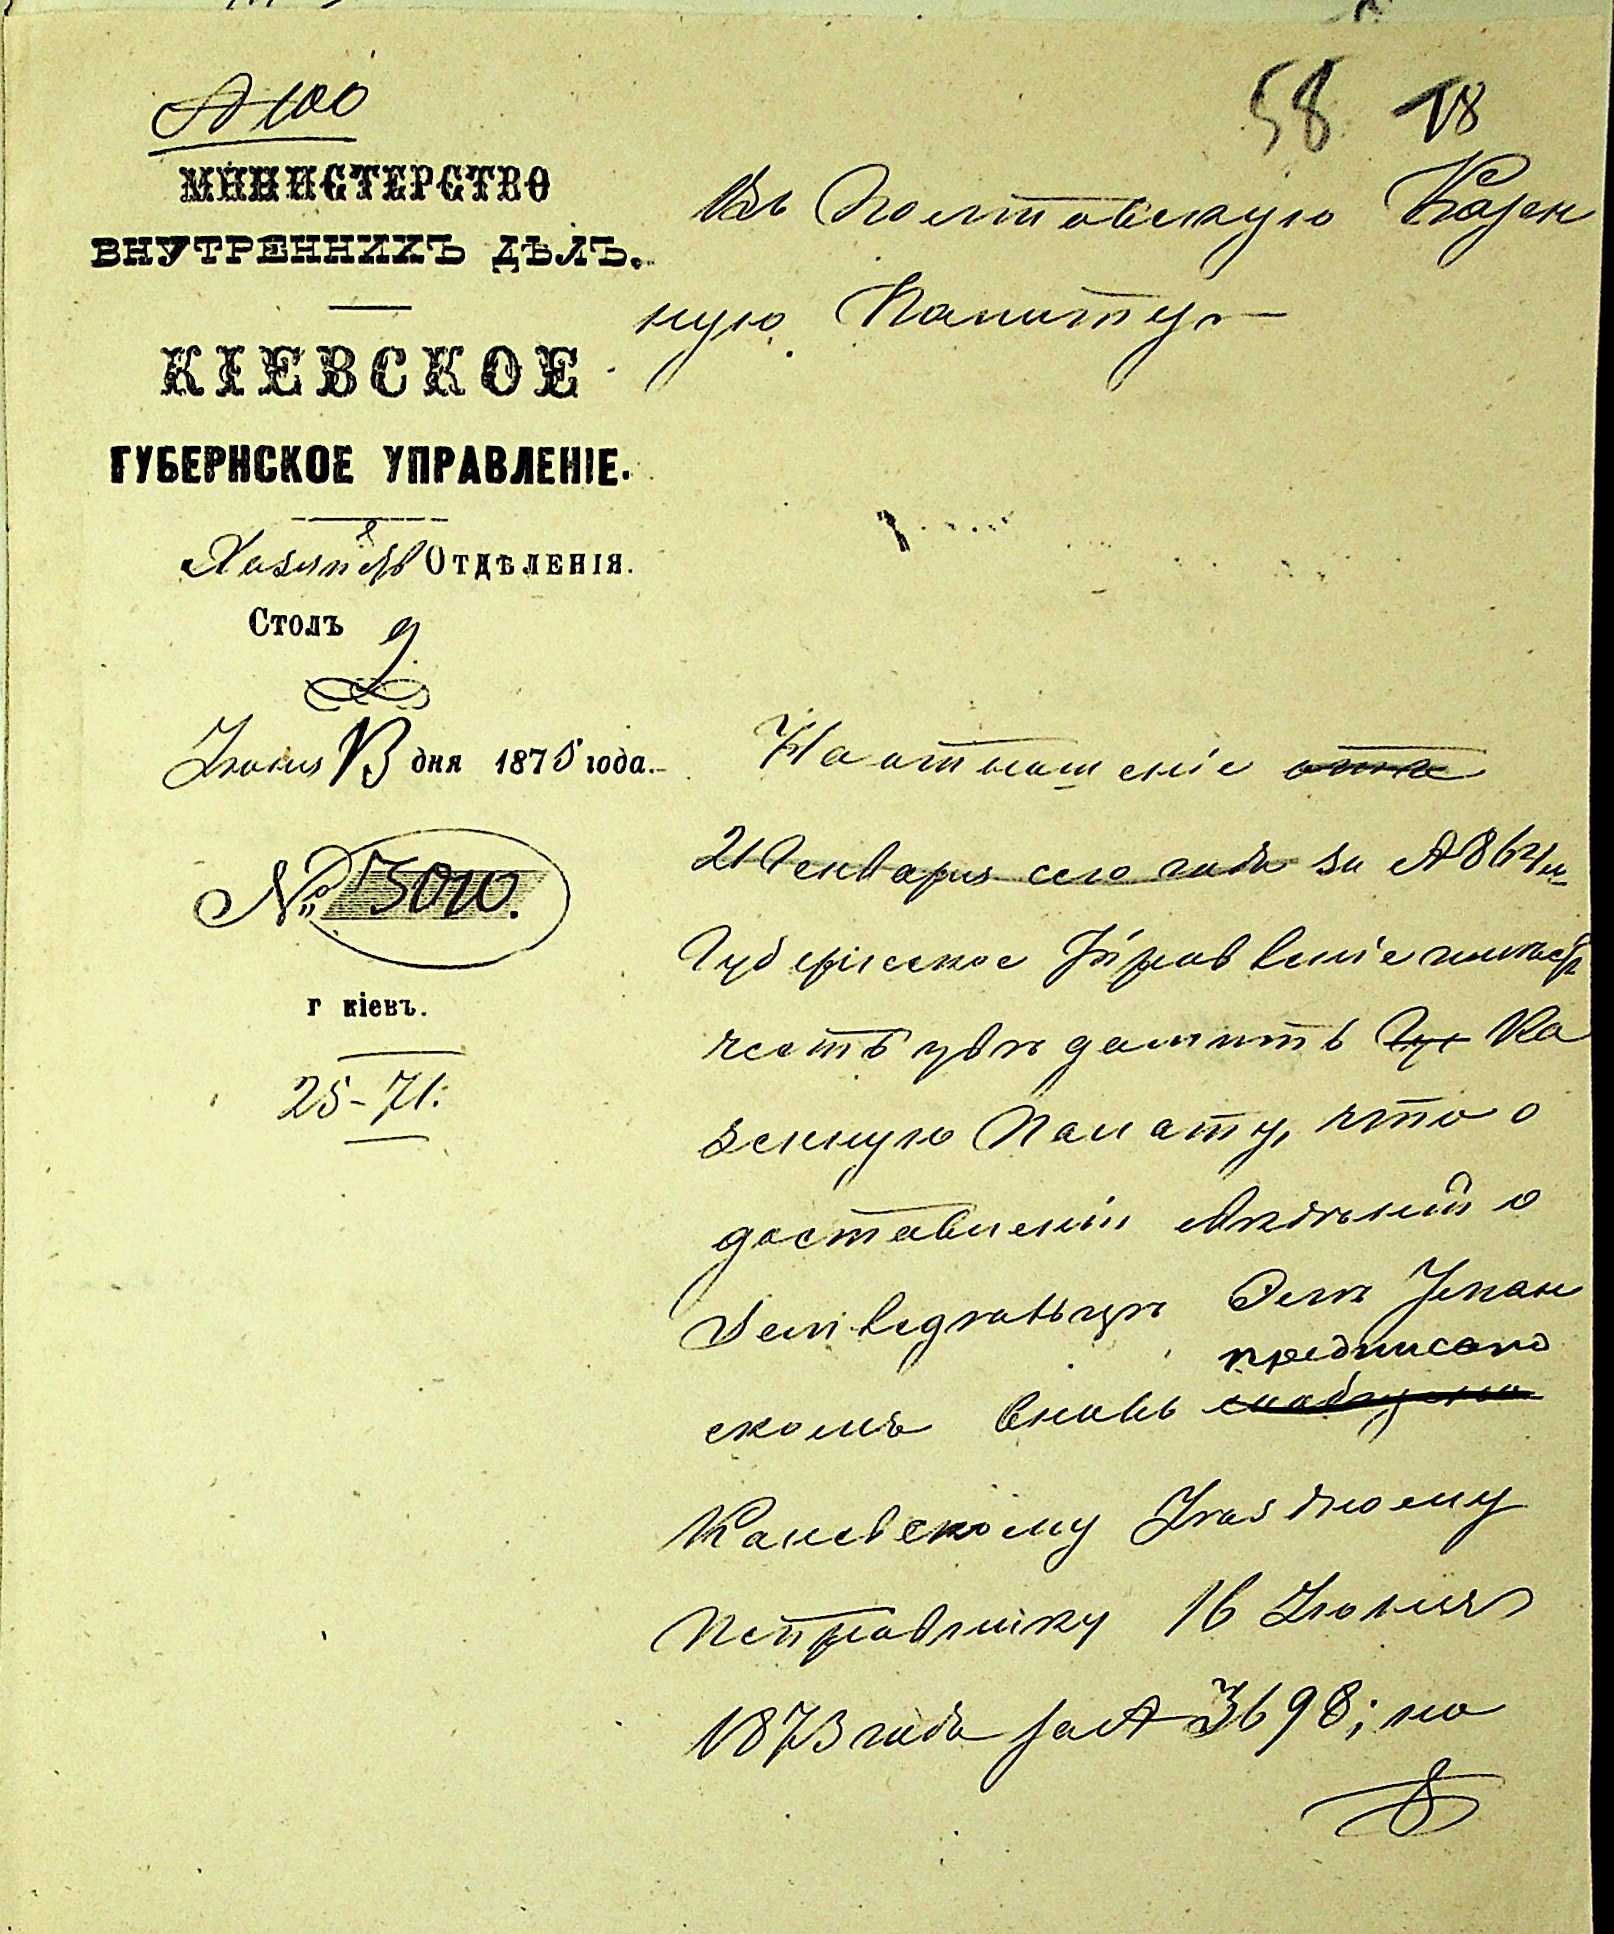 № 100
58 18
МИНИСТЕРСТВО
ВНУТРЕННИХЪ ДѢЛЪ.
КІЕВСКОЕ
ГУБЕРНСКОЕ УПРАВЛЕНІЕ.
ОТДѢЛЕНІЯ.
Столъ 2
дня 1875 года.
№ 5010.
г кіевъ.
25-71.
Въ Полтавскую Казен
ную Палату
На отношеніе
21 Генваря сего года за № 864
Губернское Правленіе
честь увѣдомить Ка
зенную Палату, что о
доставленіи свѣдѣній о
землевладѣльцѣ
скомъ вновь предписано
Каневскому Уѣздному
Исправнику 16 Іюня
1873 года за № 3698; но